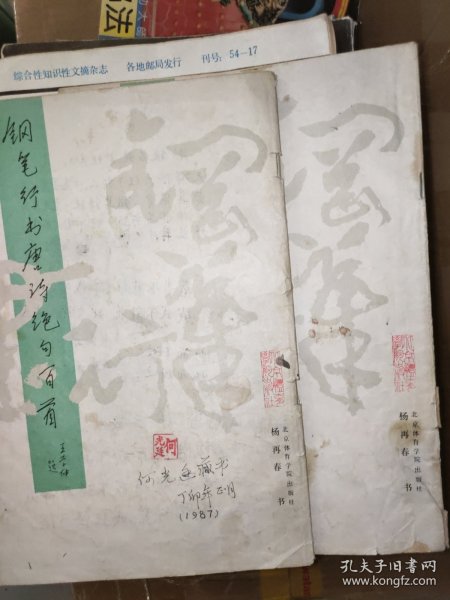 综合性知识性文摘杂志 各地邮局发行 刊号:54—17
钢笔行书唐诗绝句百首
钢笔
行
北京体育学院出版社
杨再春 书
何光
延
何光延藏书
丁卯年正月
(1987)
钢笔
北京体育学院出版社
杨再春 书
孔夫子旧书网
www.kongfz.com